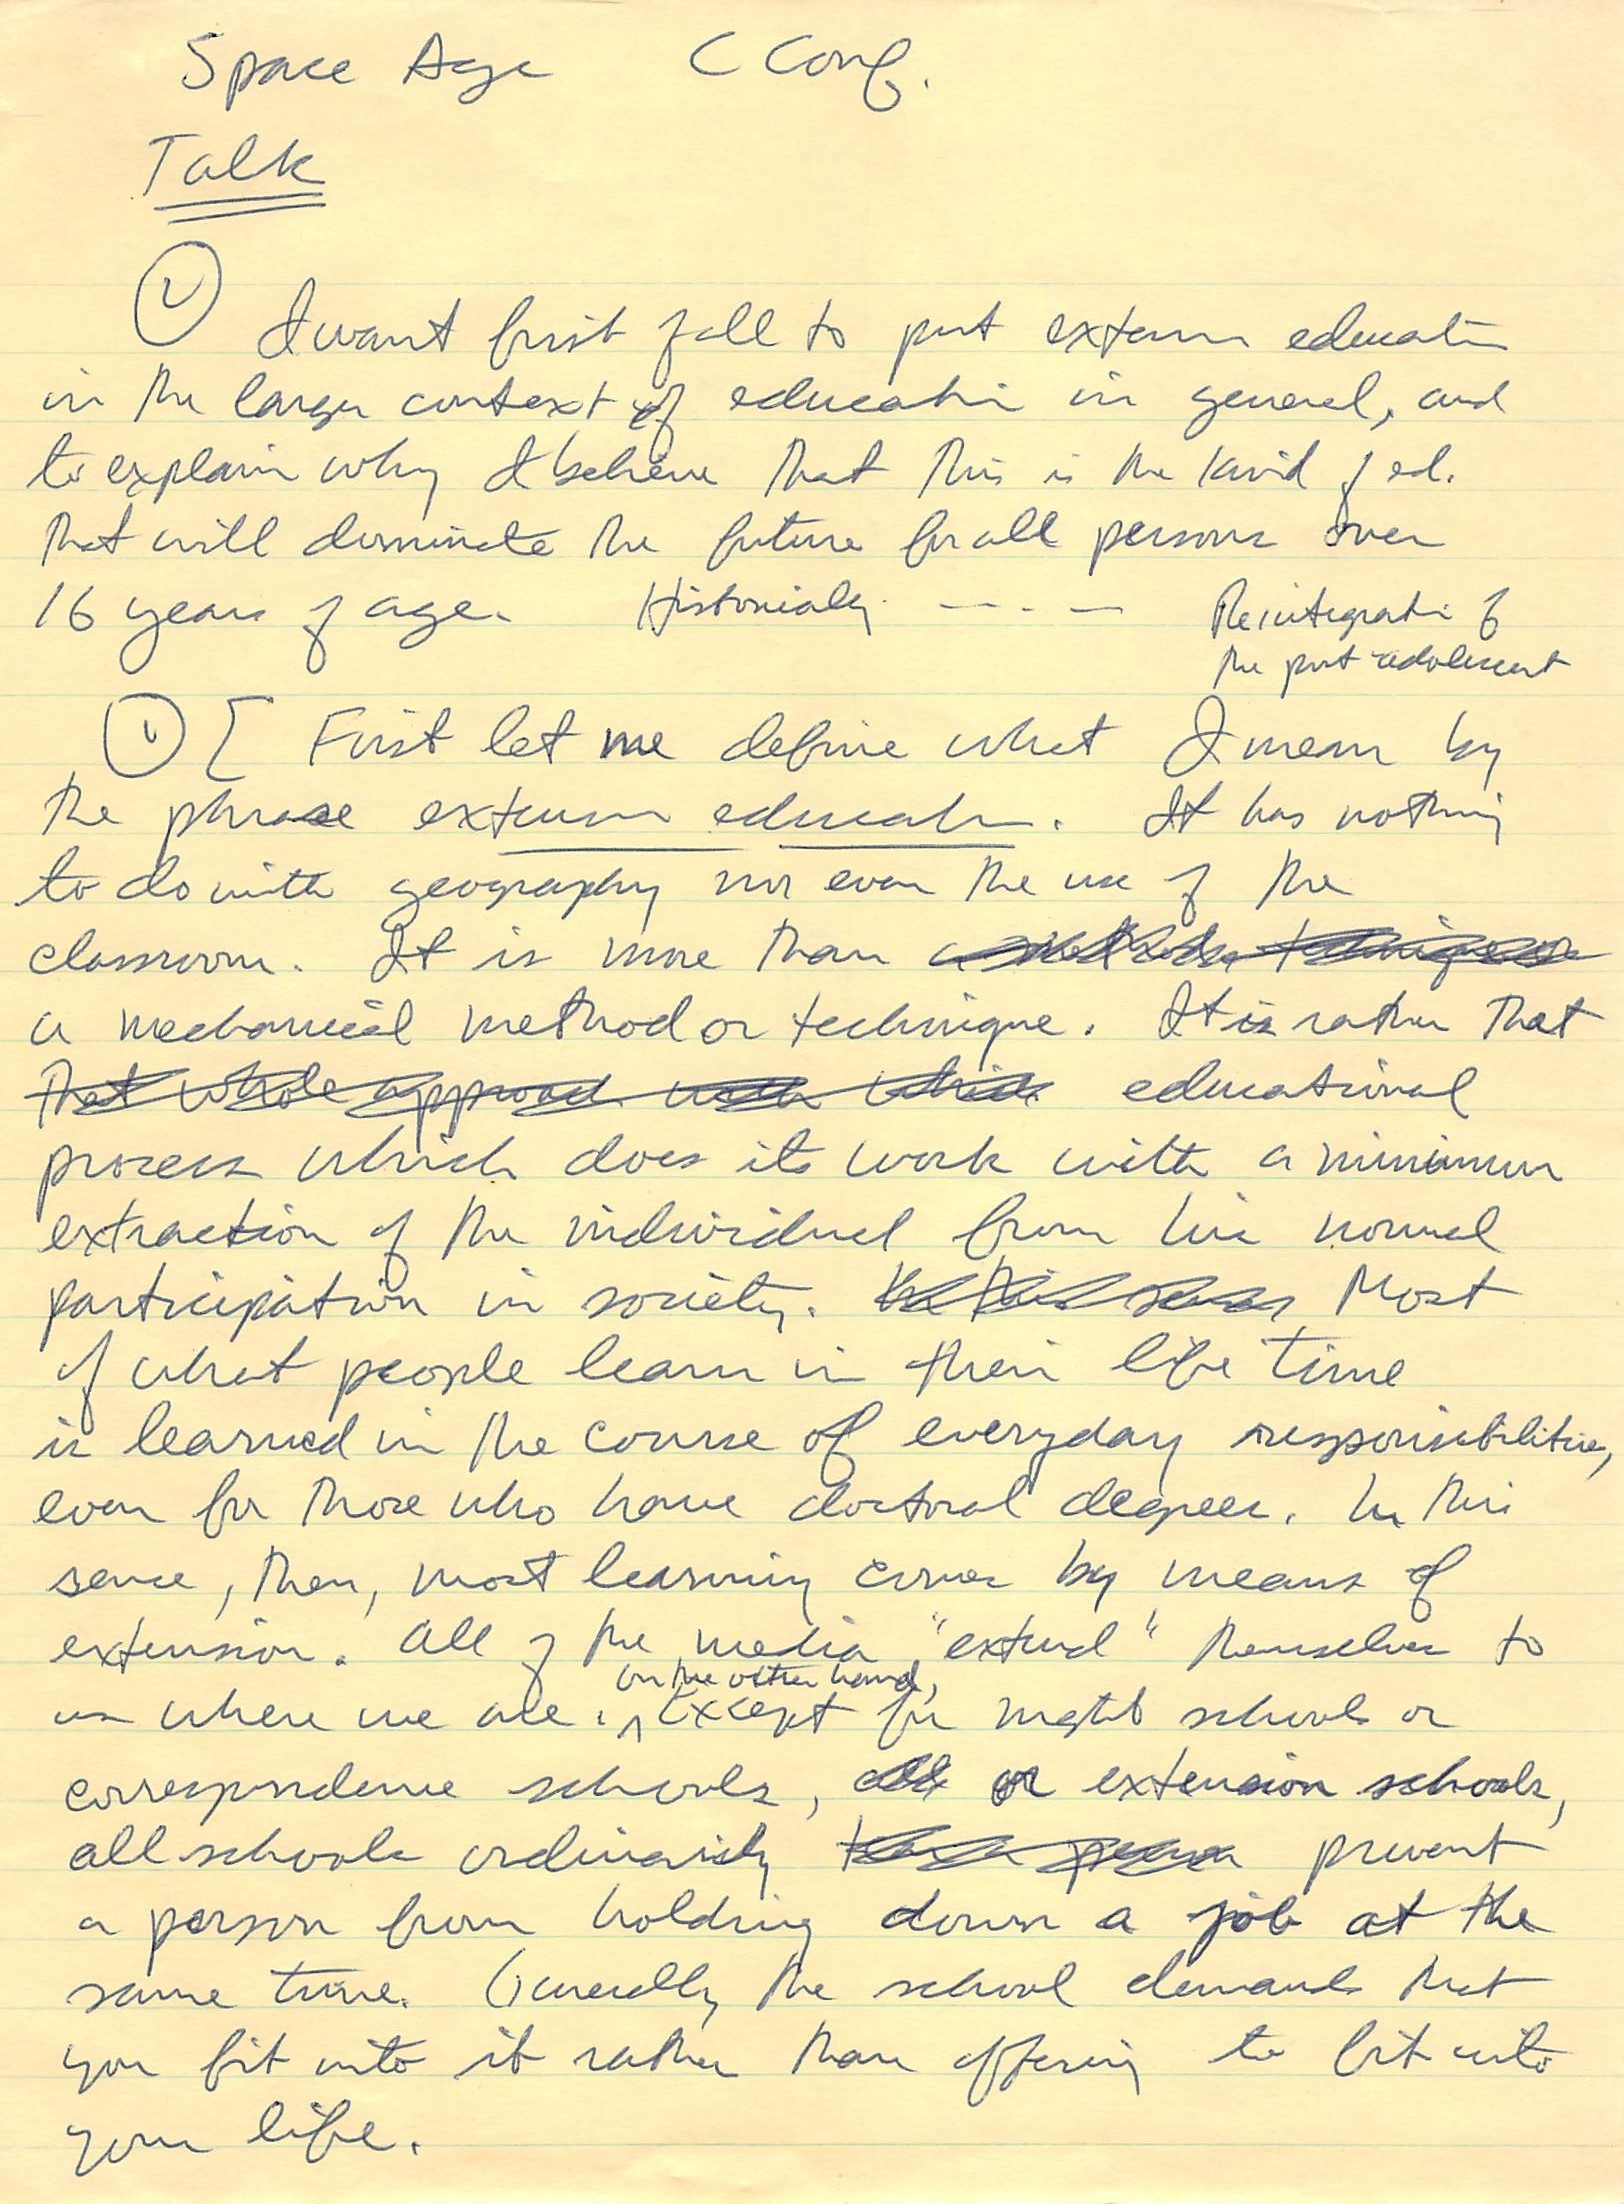 Space Age C Conf.
Talk
2
I want first of all to put extension education
in the larger context of education in general, and
to explain why I believe that this is the kind of ed.
that will dominate the future for all persons over
16 years of age. Historically - - - - Reintegration of
the post-adolescent
1 [ First let me define what I mean by
the phrase extension education. It has nothing
to do with geography nor even the use of the
classroom. It is more than
a mechanical method or technique. It is rather that
that whole approach which educational
process which does its work with a minimum
extraction of the individual from his normal
participation in society. Most
of what people learn in their life time
is learned in the course of everyday responsibilities,
even for those who have doctoral degrees. In this
sense, then, most learning comes by means of
extension. All of the media "extend" themselves to
on the other hand,
us where we are. ^ Except for night schools or
correspondence schools, or extension schools,
all schools ordinarily prevent
a person from holding down a job at the
same time. Generally the school demands that
you fit into it rather than offering to fit into
your life.